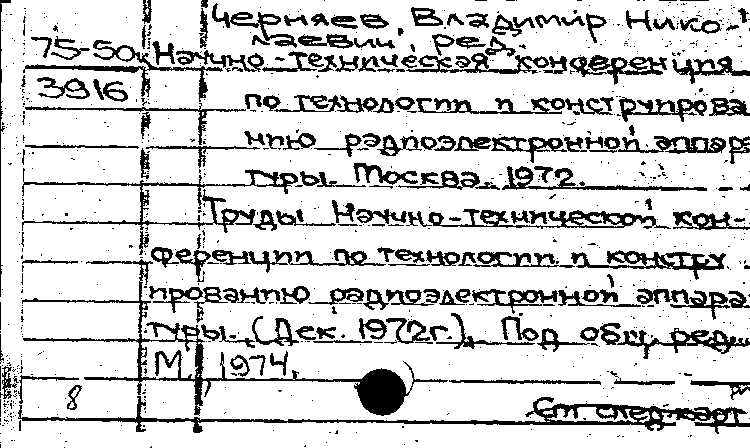 Черняев, Владимир Нико-
лаевич, ред.
75-50к Научно-техническая конференция
3916 по технологии и конструирова
нию радиоэлектронной аппара
туры. Москва. 1972.
Труды Научно-технической кон-
ференции по технологии и констру
ированию радиоэлектронной аппара
туры. (Дек. 1972г.). Под общ. ред.
М., 1974.
8
См след карт